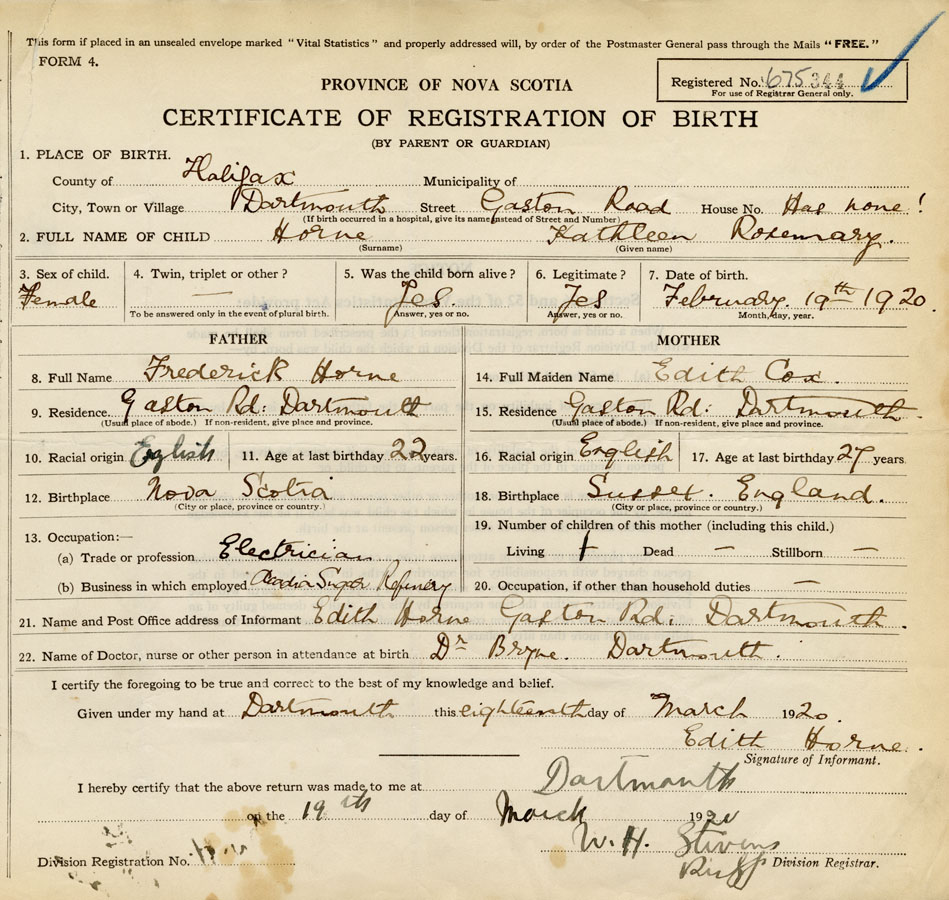 This form if placed in an unsealed envelope marked "Vital Statistics" and properly addressed will, by order of the Postmaster General pass through the Mails "FREE."
FORM 4.
PROVINCE OF NOVA SCOTIA
Registered No. 675 344
For use of Registrar General only.
CERTIFICATE OF REGISTRATION OF BIRTH
(BY PARENT OR GUARDIAN)
1. PLACE OF BIRTH.
County of Halifax Municipality of
City, Town or Village Dartmouth Street Gaston Road House No. Has none!
(If birth occurred in a hospital, give its name instead of Street and Number)
2. FULL NAME OF CHILD Horne Kathleen Rosemary.
(Surname) (Given name)
3. Sex of child. 4. Twin, triplet or other? 5. Was the child born alive? 6. Legitimate? 7. Date of birth.
Female — Yes. Yes February. 19th 1920.
To be answered only in the event of plural birth. Answer, yes or no. Answer, yes or no. Month, day, year.
FATHER MOTHER
8. Full Name Frederick Horne 14. Full Maiden Name Edith Cox.
9. Residence. Gaston Rd: Dartmouth 15. Residence Gaston Rd: Dartmouth.
(Usual place of abode.) If non-resident, give place and province. (Usual place of abode.) If non-resident, give place and province.
10. Racial origin English 11. Age at last birthday 22 years. 16. Racial origin English 17. Age at last birthday 27 years.
12. Birthplace Nova Scotia 18. Birthplace Sussex. England.
(City or place, province or country.) (City or place, province or country.)
13. Occupation:— 19. Number of children of this mother (including this child.)
(a) Trade or profession Electrician Living 1 Dead — Stillborn —
(b) Business in which employed Acadia Sugar Refinery 20. Occupation, if other than household duties —
21. Name and Post Office address of Informant Edith Horne Gaston Rd: Dartmouth.
22. Name of Doctor, nurse or other person in attendance at birth Dr Bryne. Dartmouth.
I certify the foregoing to be true and correct to the best of my knowledge and belief.
Given under my hand at Dartmouth this eighteenth day of March 1920.
Edith Horne.
Signature of Informant.
I hereby certify that the above return was made to me at Dartmouth
on the 19th day of March 1920
W. H. Stevens
Division Registration No. Division Registrar.